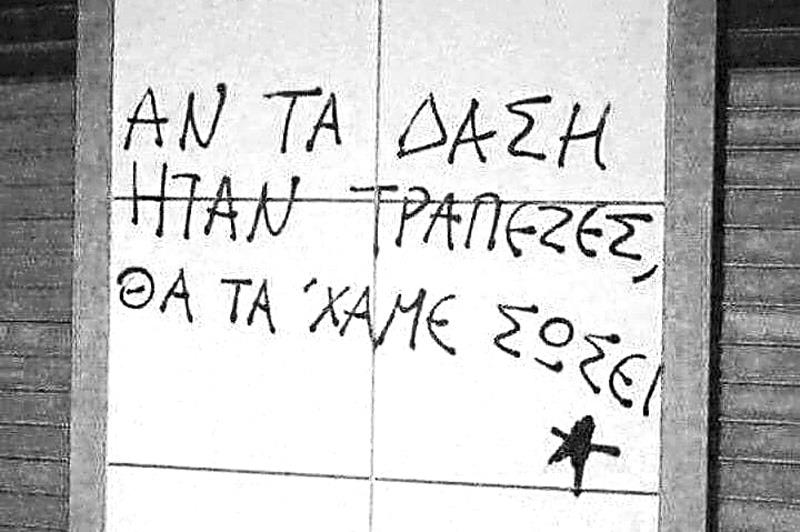 ΑΝ ΤΑ ΔΑΣΗ
ΗΤΑΝ ΤΡΑΠΕΖΕΣ,
ΘΑ ΤΑ 'ΧΑΜΕ ΣΩΣΕΙ